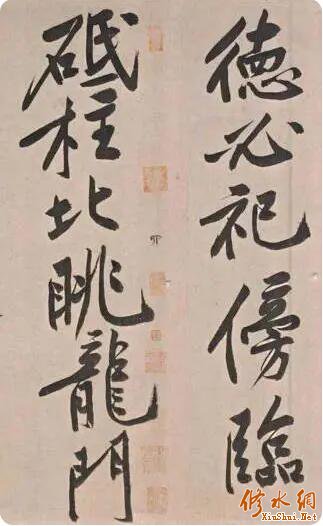 德必祀傍臨
砥柱北眺龍門
修水網
XiuShui.Net